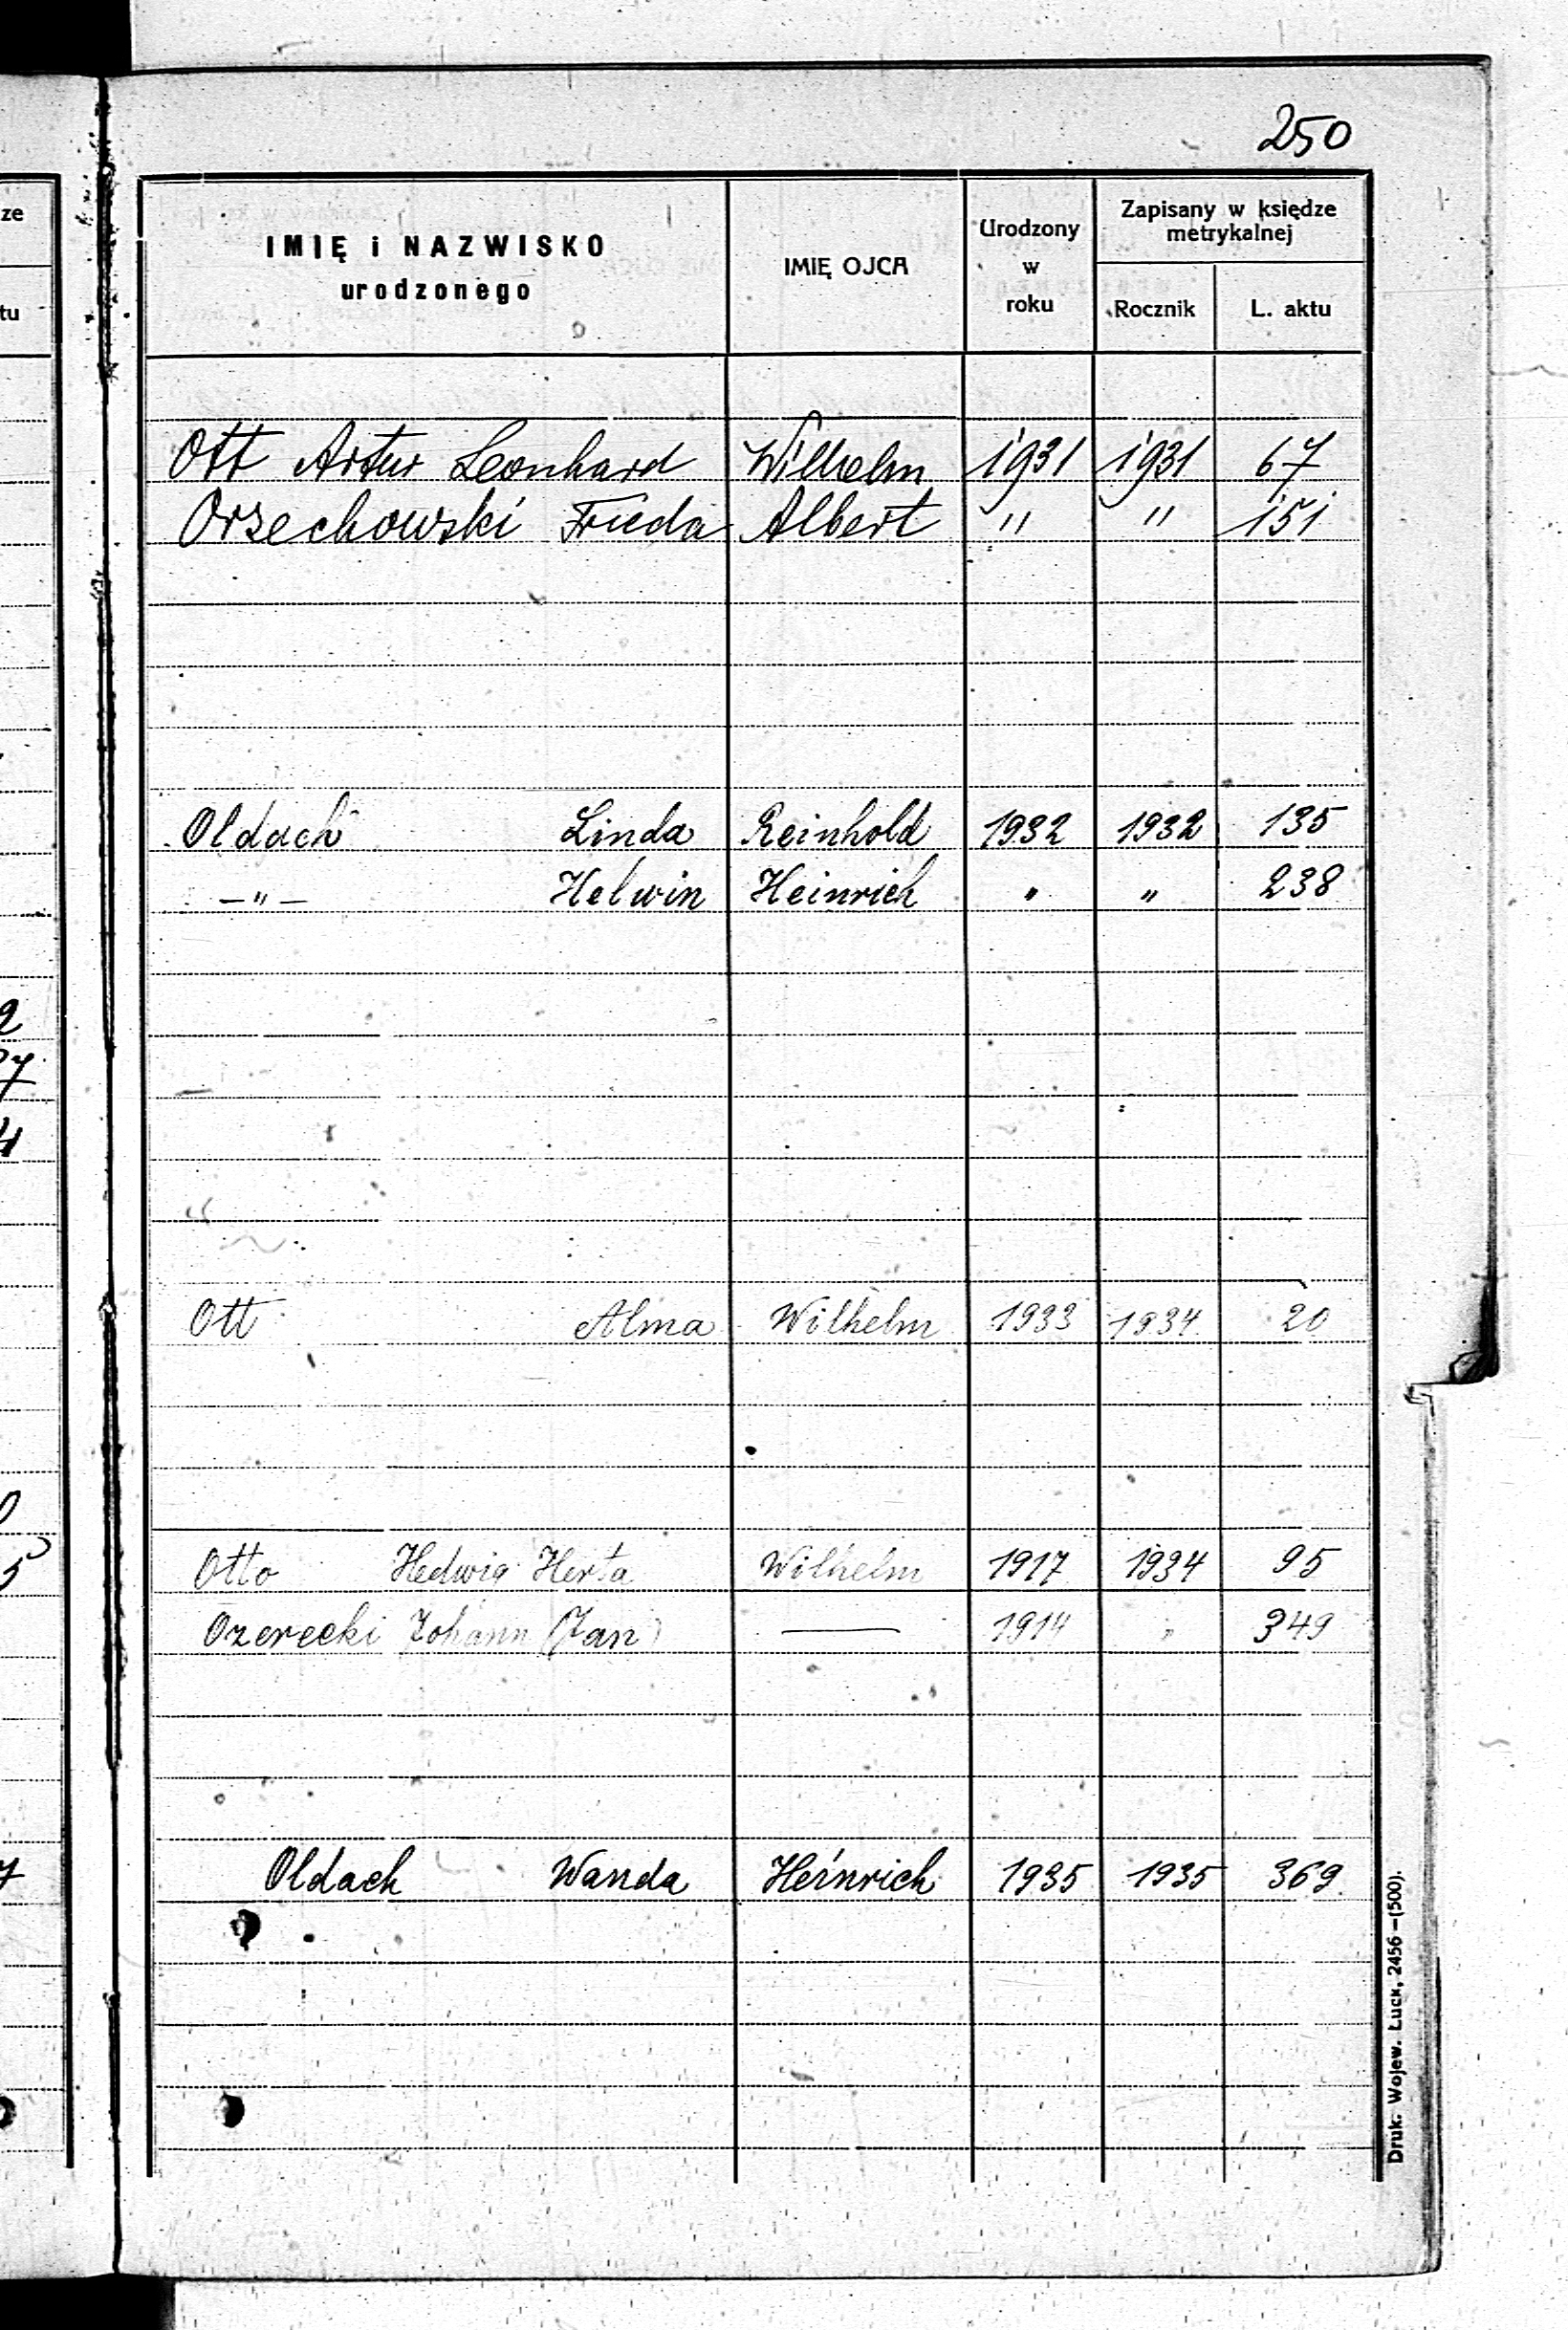 250
IMIĘ i NAZWISKO urodzonego | IMIĘ OJCA | Urodzony w roku | Zapisany w księdze metrykalnej
Rocznik | L. aktu
Ott Artur Leonhard | Wilhelm | 1931 | 1931 | 67
Orzechowski Frieda | Albert | " | " | 151
Oldach Linda | Reinhold | 1932 | 1932 | 135
—"— Helwin | Heinrich | " | " | 238
Ott Alma | Wilhelm | 1933 | 1934 | 20
Otto Hedwig Herta | Wilhelm | 1917 | 1934 | 95
Ozerecki Johann (Jan) | — | 1914 | " | 349
Oldach Wanda | Heinrich | 1935 | 1935 | 369
Druk. Wojew. Łuck, 2456 —(500).